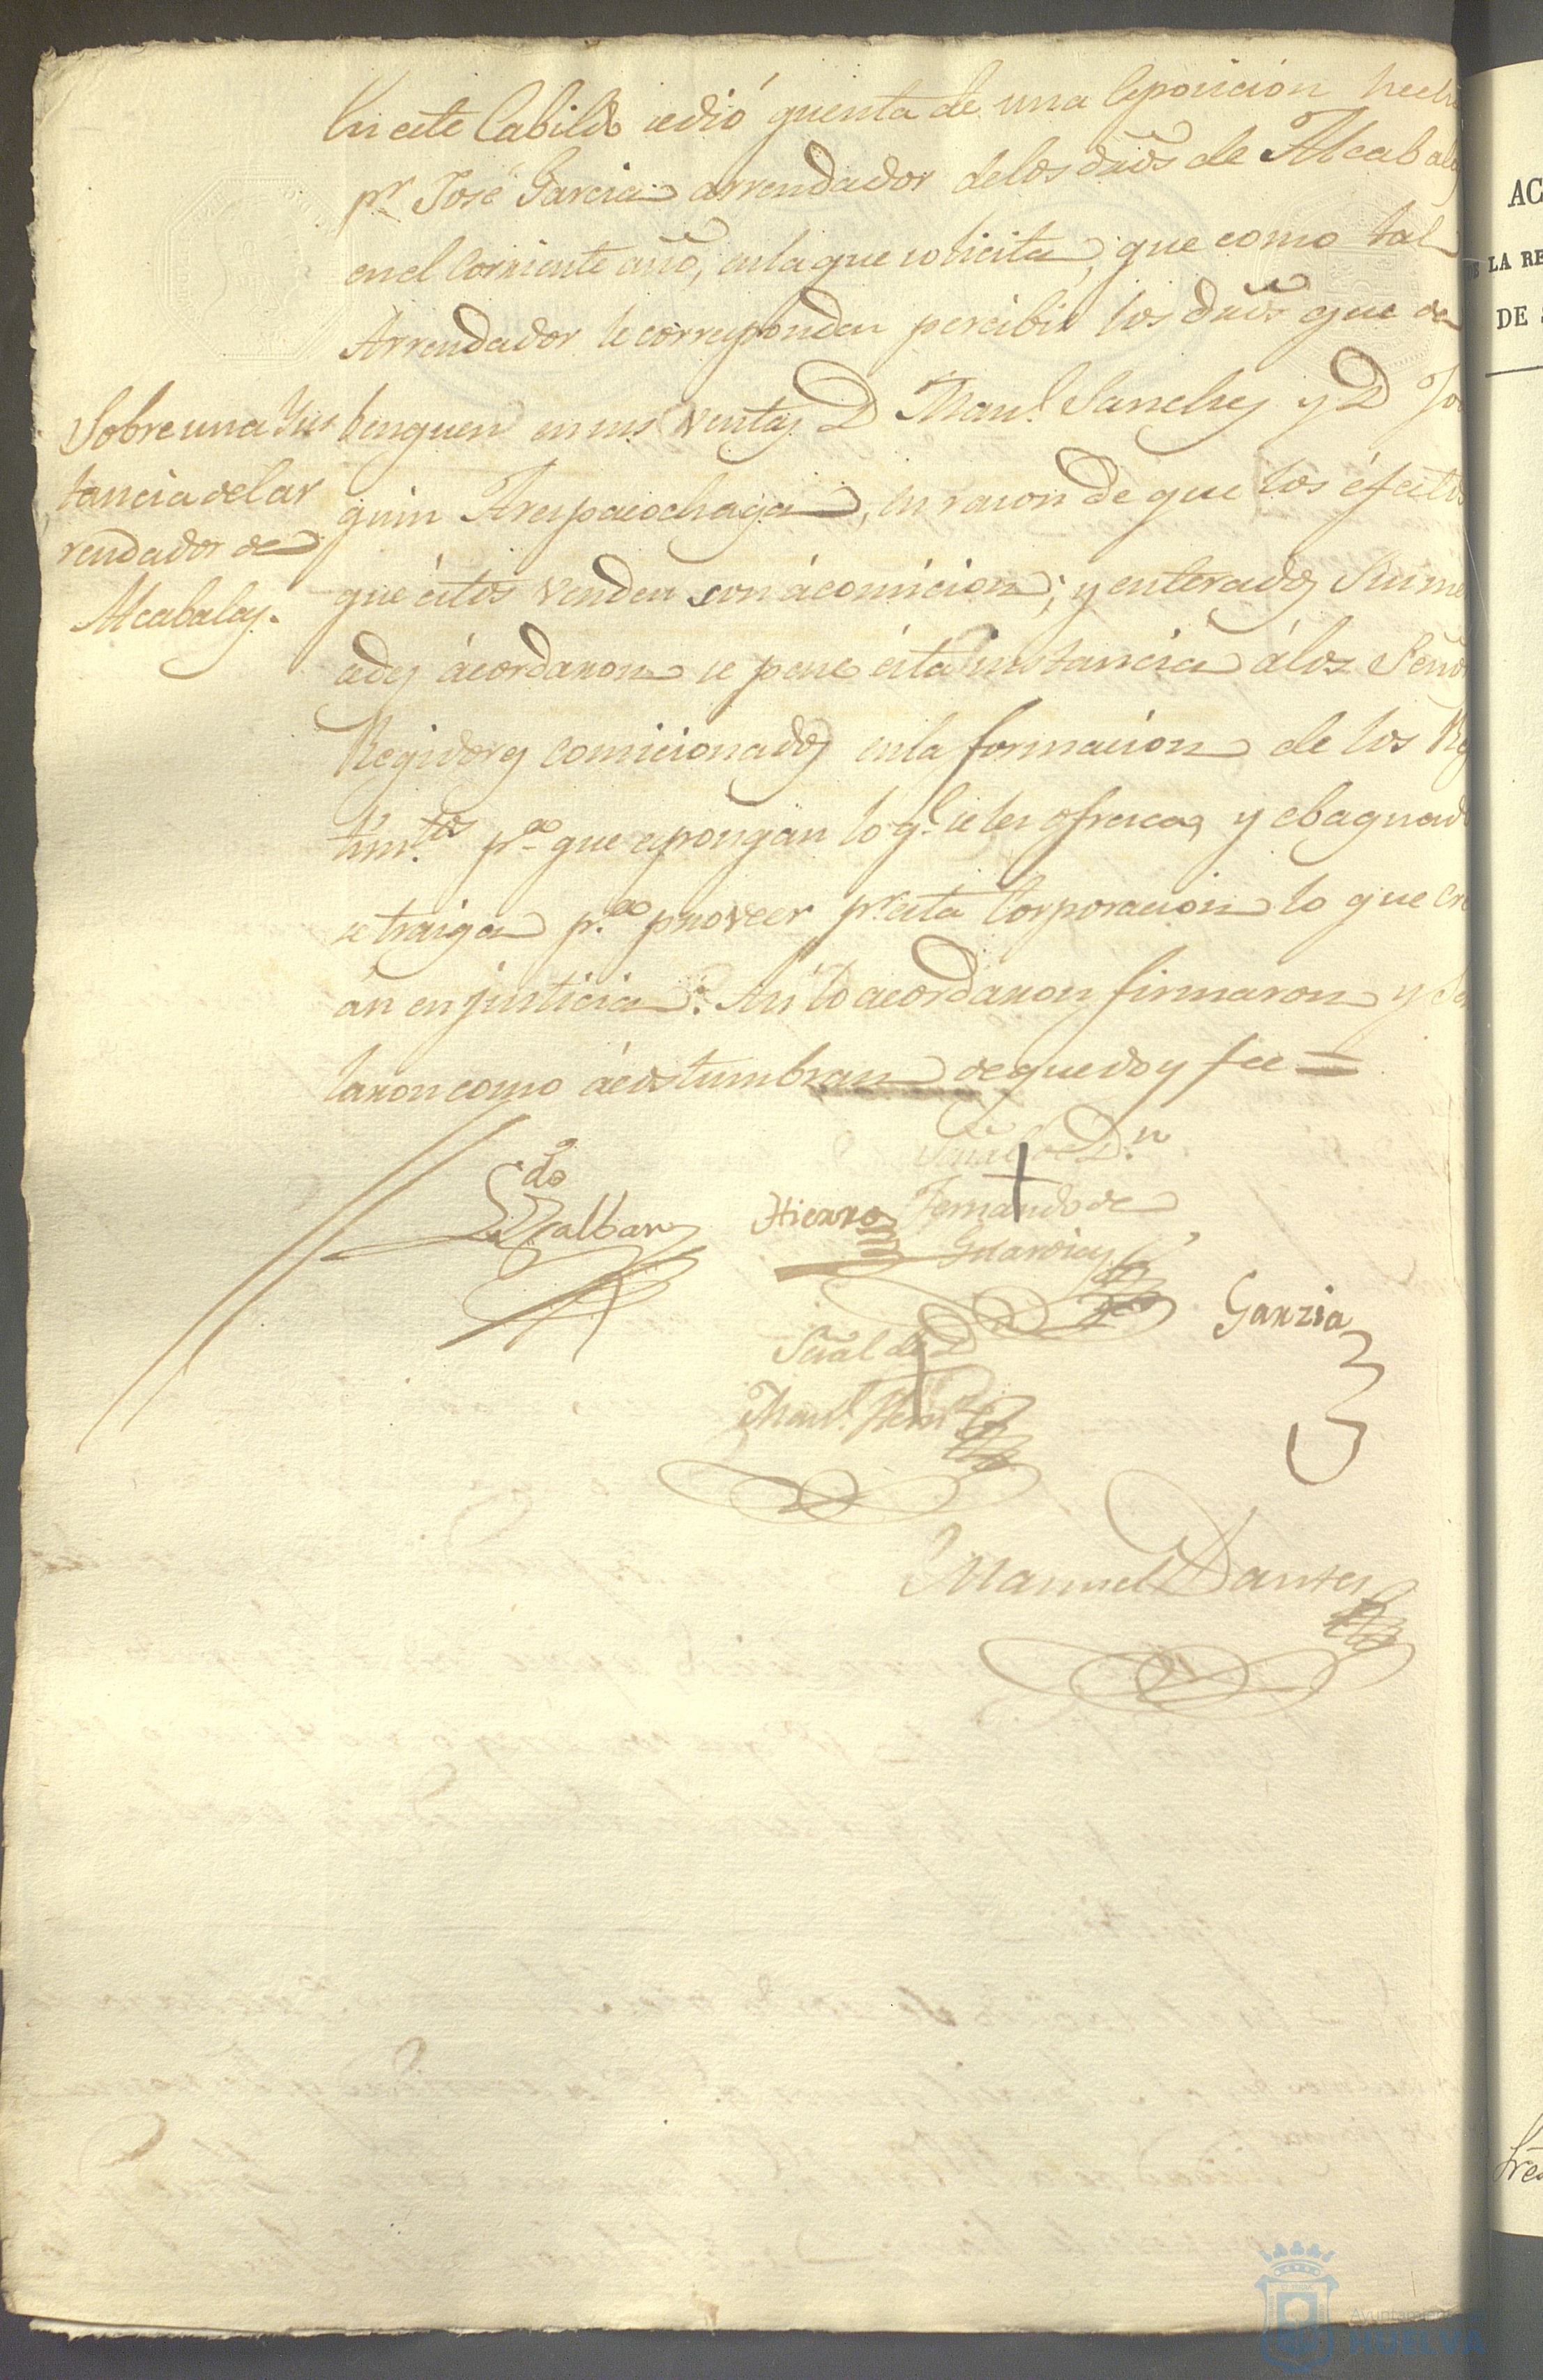 En este Cabildo se dió quenta de una Esposicion hecha
pr José Garcia arrendador de los dros de Alcabalas
en el Corriente año, en la que solicita, que como tal
Arrendador le corresponden percibir los dros que de
Sobre una Yns
tancia del ar
rendador de
Alcabalas.
benguen en sus ventas D Manl. Sanches y D Joa
quin Trespacochaga, en rason de que los éfectos
que éstos venden son á comicion; y enterados Sus me
ades ácordaron se pase ésta instancia á los Señor
Regidores comicionados en la formacion de los Re
tim.tos p.a que espongan lo q.e se les ofresca, y ebaquado
se traiga p.a proveer pr esta Corporacion lo que cre
án en justicia. Asi lo acordaron firmaron y Se
laron como ácostumbran de que doy fee =
Ldo
Escalbar
Hierro
Señal de D.n
Fernando de
Garzia
Señal de D
Manl. Hernz
Manuel Dantes
AC
LA RE
DE
Ayuntamiento de
HUELVA